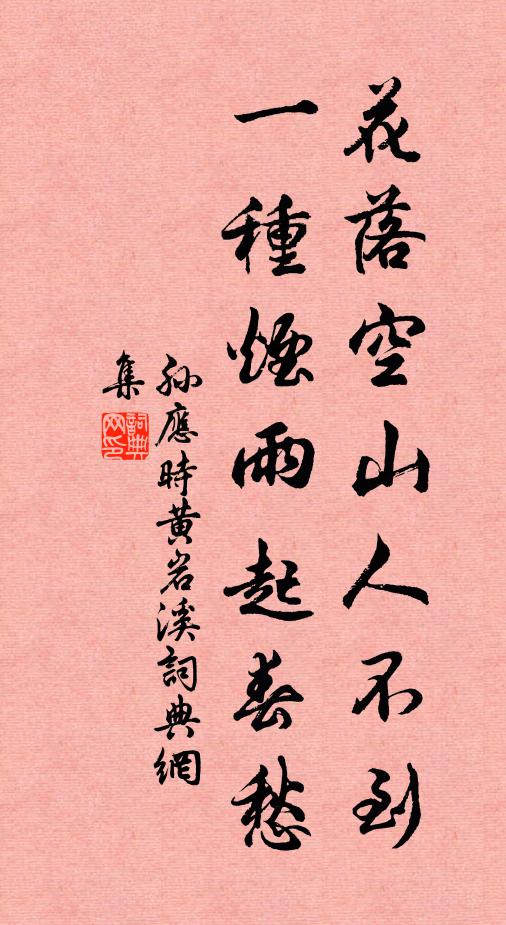 花落空山人不到
一種煙雨起春愁
孫應時黄岩溪詞典網
集
詞典網印